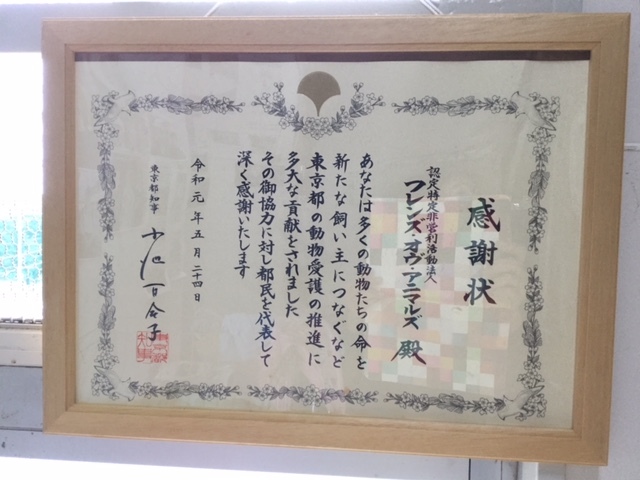 感謝状
認定特定非営利活動法人
フレンズ・オヴ・アニマルズ 殿
あなたは多くの動物たちの命を
新たな飼い主につなぐなど
東京都の動物愛護の推進に
多大な貢献をされました
その御協力に対し都民を代表して
深く感謝いたします
令和元年五月二十四日
東京都知事 小池百合子